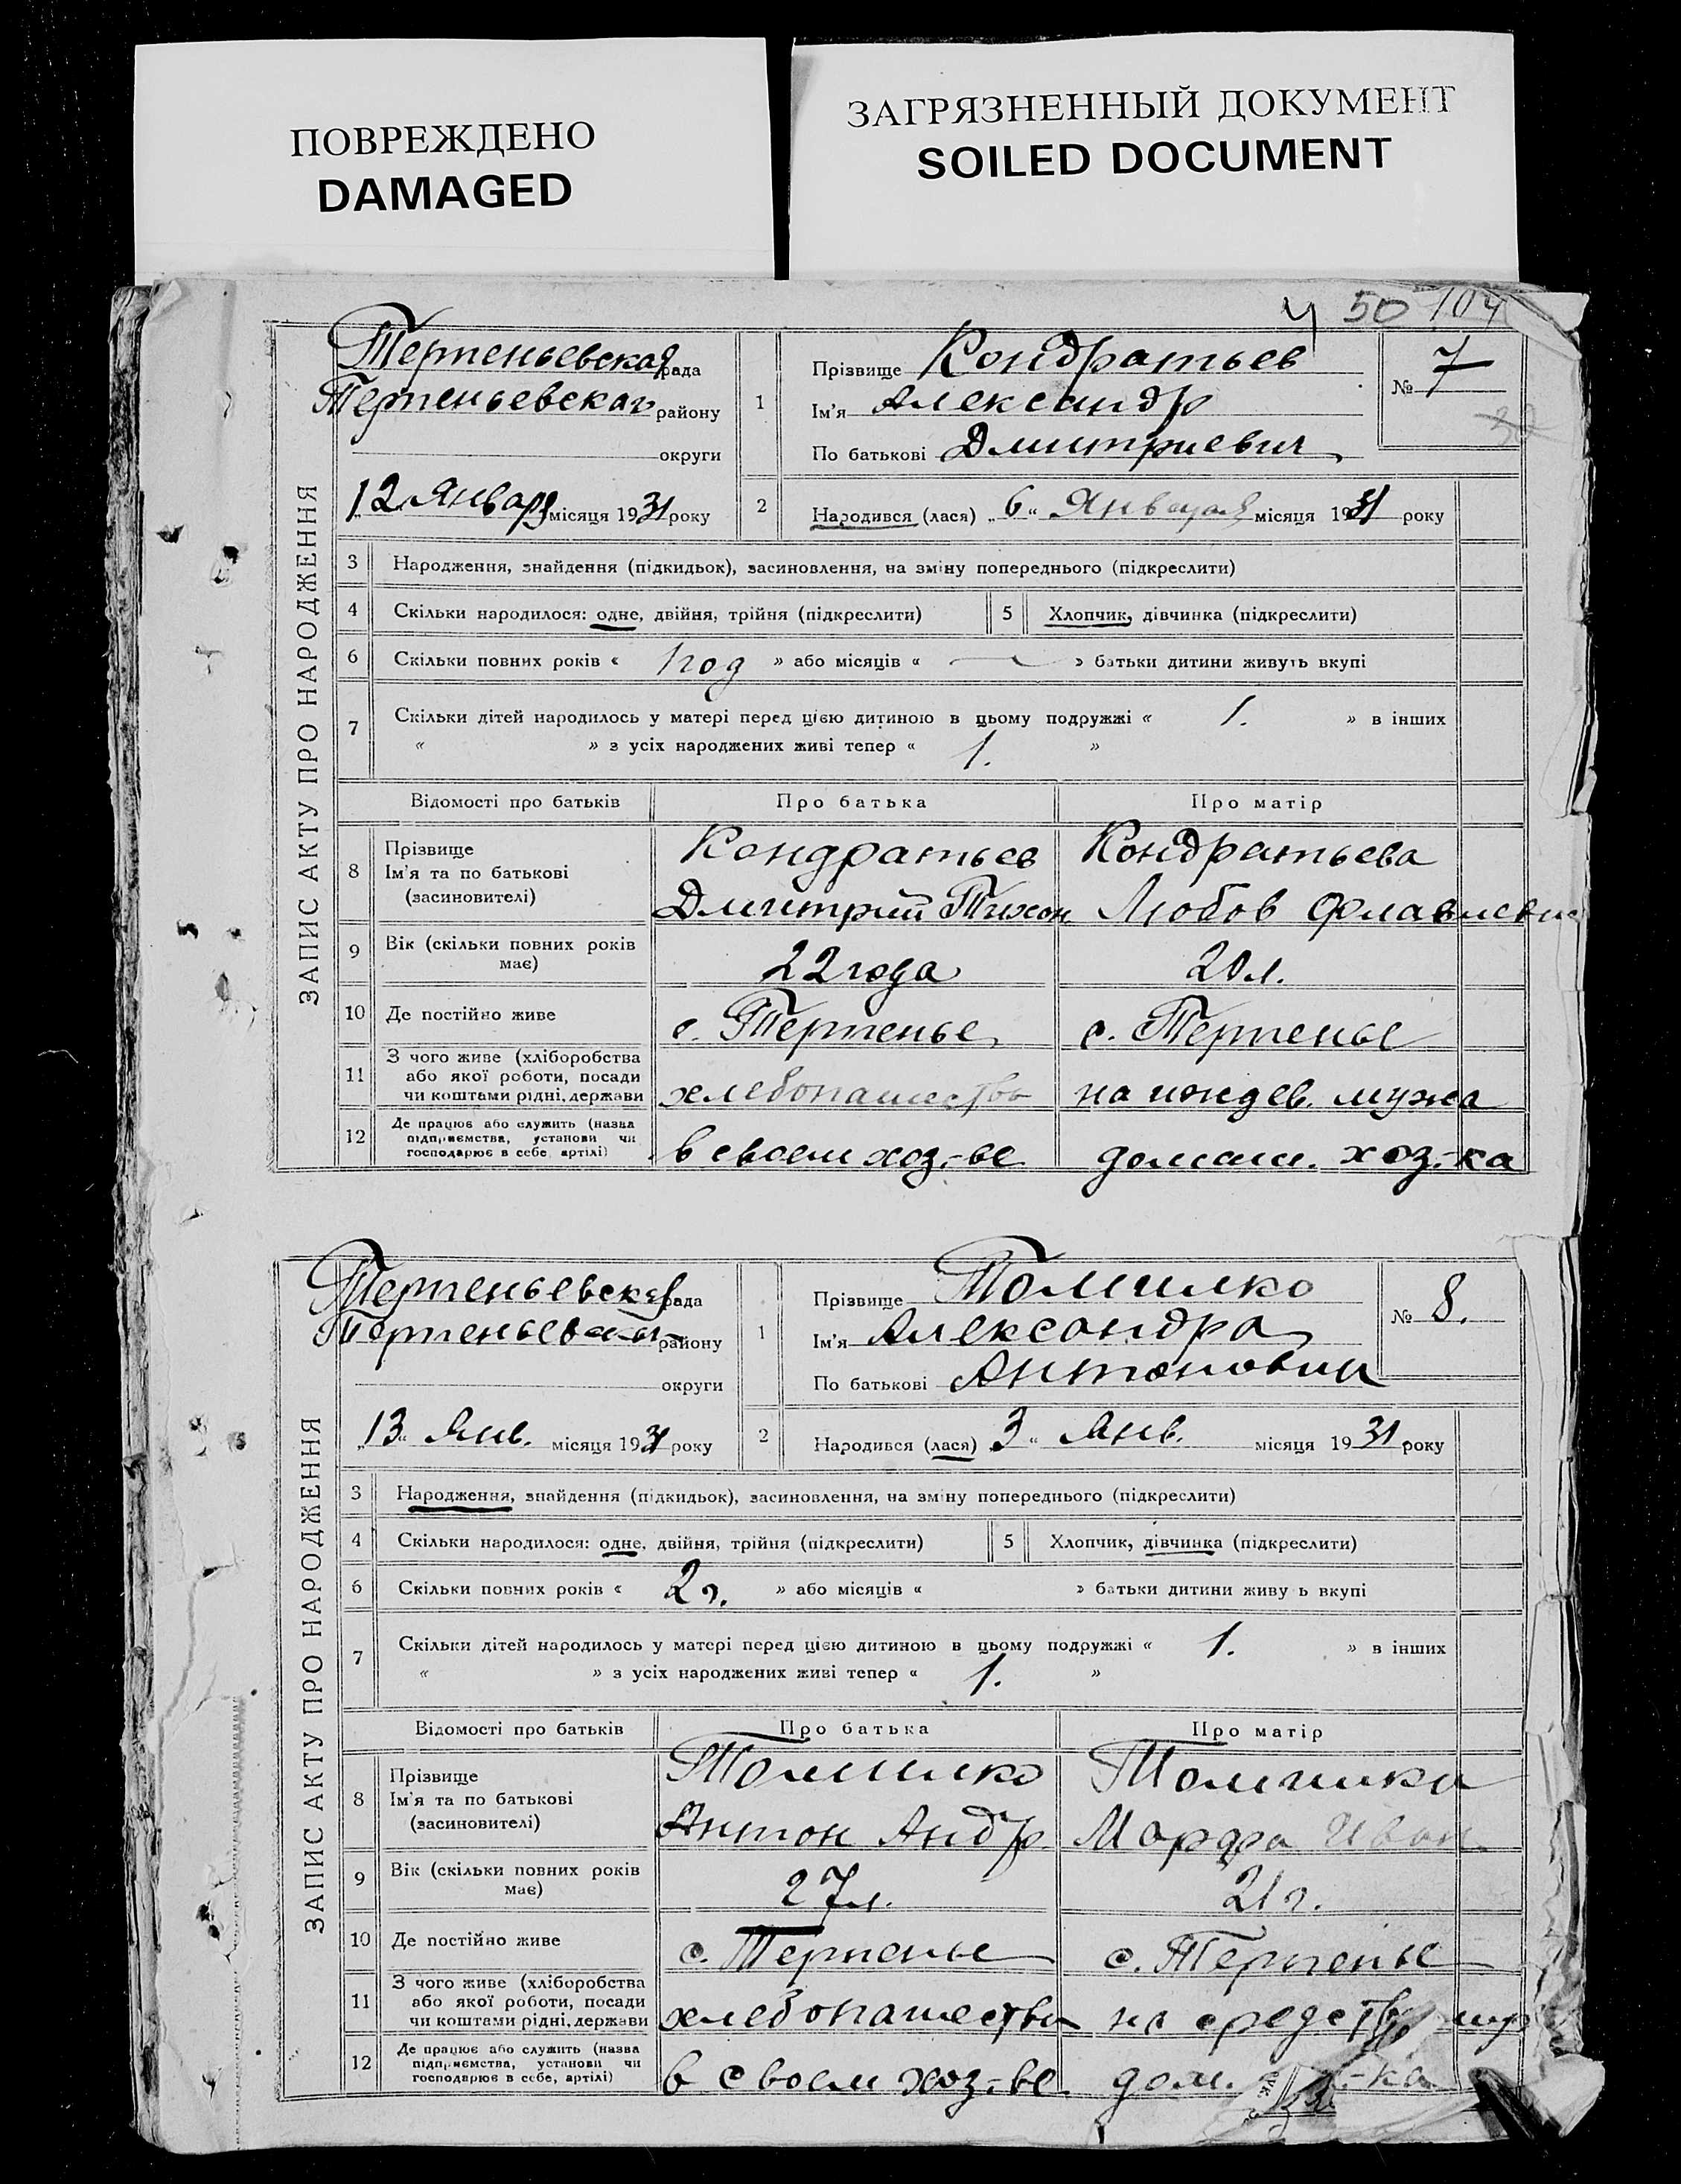 ПОВРЕЖДЕНО
DAMAGED
ЗАГРЯЗНЕННЫЙ ДОКУМЕНТ
SOILED DOCUMENT
50 104
ЗАПИС АКТУ ПРО НАРОДЖЕННЯ
Терпеньевская рада
Терпеньевская району
округи
12 Января місяця 1931 року
1 Прізвище Кондратьев
Ім'я Александр
По батькові Дмитриевич
№ 7
2 Народився (лася) „6" Января місяця 1931 року
3 Народження, знайдення (підкидьок), засиновлення, на зміну попереднього (підкреслити)
4 Скільки народилося: одне, двійня, трійня (підкреслити) 5 Хлопчик, дівчинка (підкреслити)
6 Скільки повних років « 1 год » або місяців « — » батьки дитини живуть вкупі
7 Скільки дітей народилось у матері перед цією дитиною в цьому подружжі « 1. » в інших
« » з усіх народжених живі тепер « 1. »
Відомості про батьків Про батька Про матір
8 Прізвище Ім'я та по батькові (засиновителі)
Кондратьев Кондратьева
Дмитрий Тихон Любов
9 Вік (скільки повних років має) 22 года 20 л.
10 Де постійно живе с. Терпенье с. Терпенье
11 З чого живе (хліборобства або якої роботи, посади чи коштами рідні, держави хлебопашество на иждев. мужа
12 Де працює або служить (назва підприємства, установи чи господарює в себе, артілі) в своем хоз-ве домаш. хоз-ка
ЗАПИС АКТУ ПРО НАРОДЖЕННЯ
Терпеньевская рада
Терпеньевская району
округи
„13" Янв. місяця 1931 року
1 Прізвище Томилко
Ім'я Александра
По батькові Антоновна
№ 8.
2 Народився (лася) 3 " Янв. місяця 1931 року
3 Народження, знайдення (підкидьок), засиновлення, на зміну попереднього (підкреслити)
4 Скільки народилося: одне, двійня, трійня (підкреслити) 5 Хлопчик, дівчинка (підкреслити)
6 Скільки повних років « 2 г. » або місяців « » батьки дитини живу ь вкупі
7 Скільки дітей народилось у матері перед цією дитиною в цьому подружжі « 1. » в інших
« » з усіх народжених живі тепер « 1. »
Відомості про батьків Про батька Про матір
8 Прізвище Ім'я та по батькові (засиновителі)
Томилко Томилко
Антон Андр. Марфа Иван
9 Вік (скільки повних років має) 27 л. 21 г.
10 Де постійно живе с. Терпенье с. Терпенье
11 З чого живе (хліборобства або якої роботи, посади чи коштами рідні, держави хлебопашество на средства
12 Де працює або служить (назва підприємства, установи чи господарює в себе, артілі) в своем хоз-ве дом. -ка